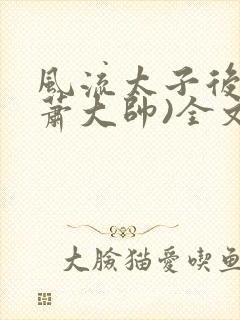 風流太子後
蕭大帥)全文
大臉猫愛喫魚